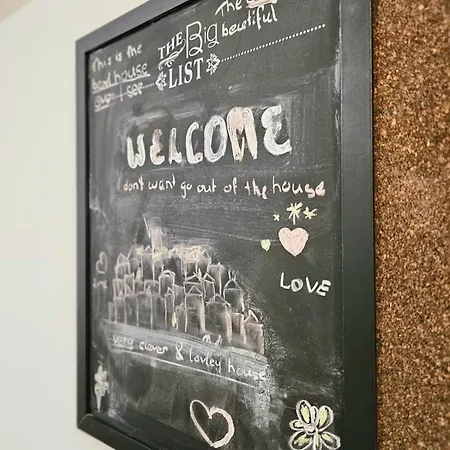 This is the
best house
ever I see
The
beautiful
THE Big
LIST
WELCOME
I don't want go out of the house
LOVE
very clever & lovley house